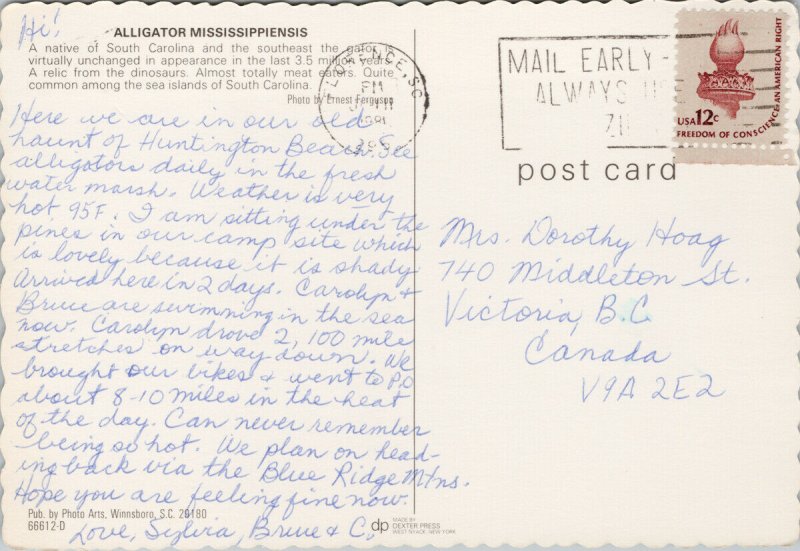 Hi!
ALLIGATOR MISSISSIPPIENSIS
A native of South Carolina and the southeast the gator is
virtually unchanged in appearance in the last 3.5 million years.
A relic from the dinosaurs. Almost totally meat eaters. Quite
common among the sea islands of South Carolina.
Photo by Ernest Ferguson
Here we are in our old
haunt of Huntington Beach. See
alligators daily in the fresh
water marsh. Weather is very
hot 95F. I am sitting under the
pines in our camp site which
is lovely because it is shady.
Arrived here in 2 days. Carolyn &
Bruce are swimming in the sea
now. Carolyn drove 2, 100 mile
stretches on way down. We
brought our bikes & went to P.O
about 8-10 miles in the heat
of the day. Can never remember
being so hot. We plan on head-
ing back via the Blue Ridge Mtns.
Hope you are feeling fine now.
Love, Sylvia, Bruce & C.
Pub. by Photo Arts, Winnsboro, S.C. 29180
66612-D
dp
MADE BY
DEXTER PRESS
WEST NYACK, NEW YORK
FLORENCE, S.C.
PM
1981
MAIL EARLY -
ALWAYS USE
ZIP
USA 12c
FREEDOM OF CONSCIENCE, AN AMERICAN RIGHT
post card
Mrs. Dorothy Hoag
740 Middleton St.
Victoria, B.C.
Canada
V9A 2E2